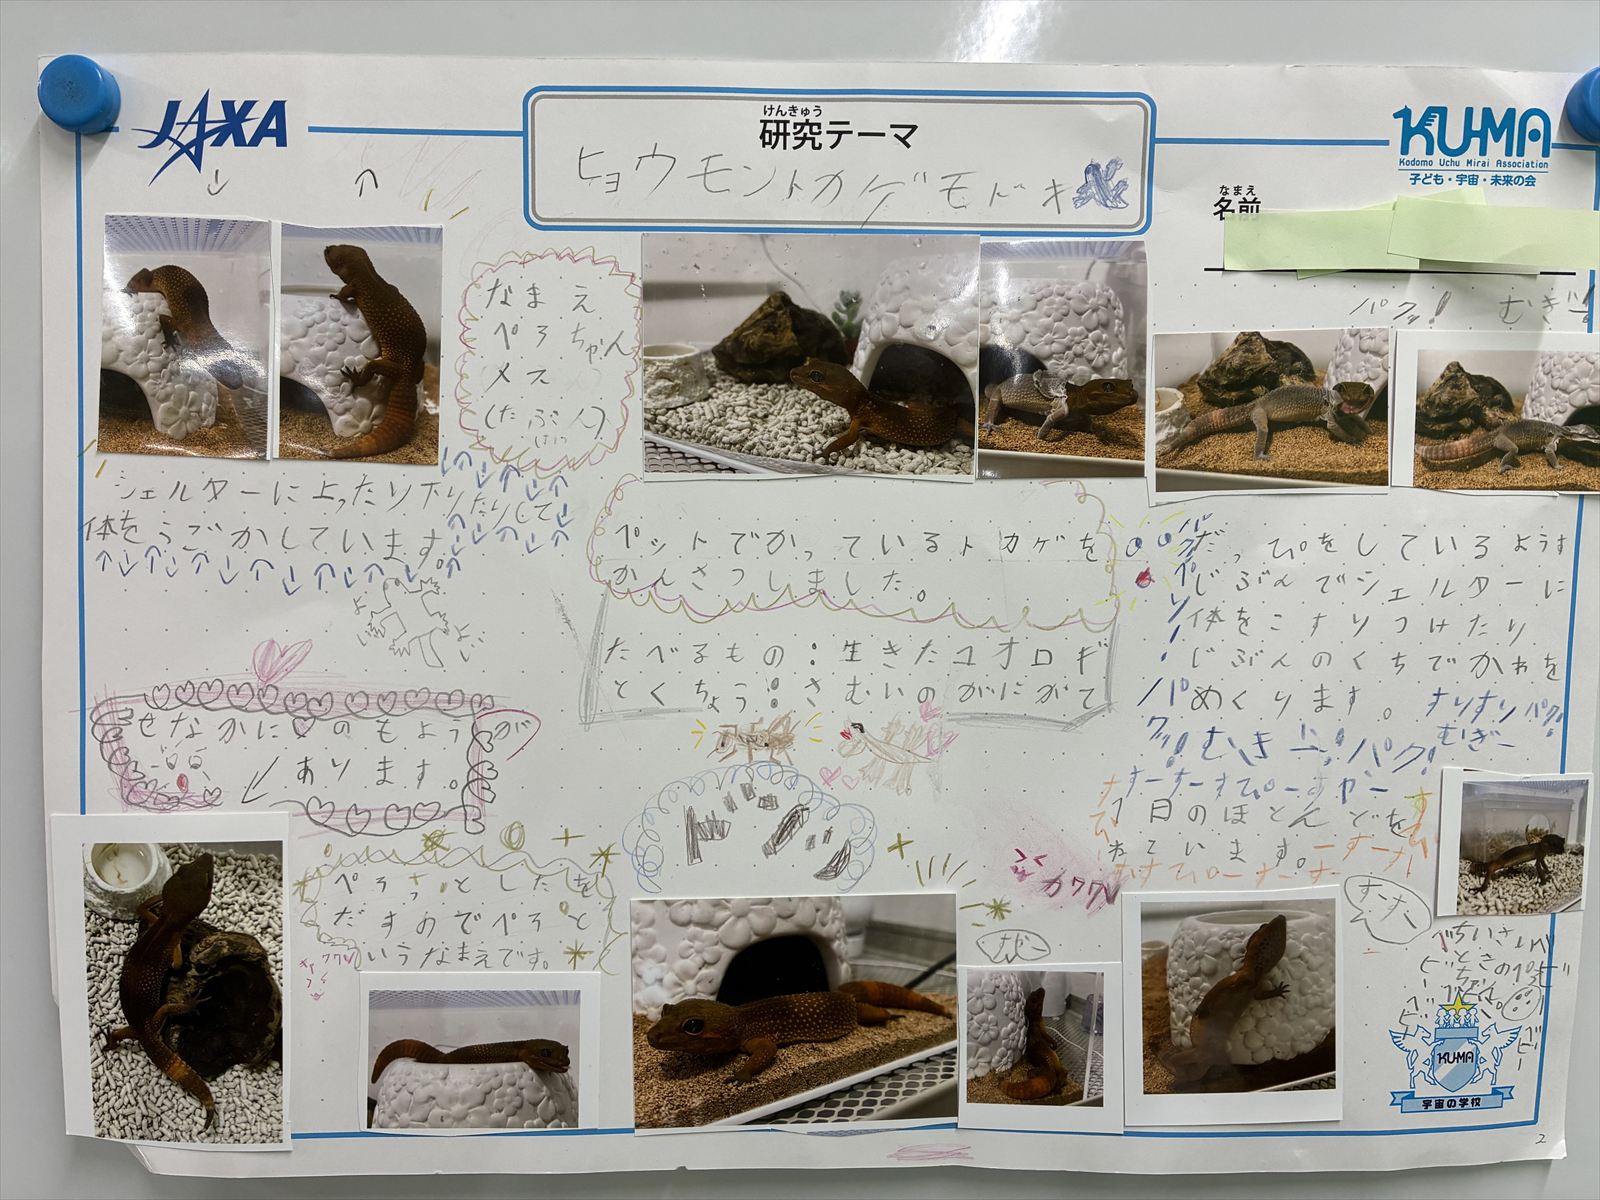 JAXA
けんきゅう
研究テーマ
ヒョウモントカゲモドキ
KUMA
Kodomo Uchu Mirai Association
子ども・宇宙・未来の会
なまえ
名前
↓ ↑
なまえ
ぺろちゃん
メス
(たぶん)
パクッ! むぎー!
シェルターに上ったり下りたりして
体をうごかしています。
よい
よい
ペットでかっているトカゲを
かんさつしました。
たべるもの:生きたコオロギ
とくちょう:さむいのがにがて
だっぴをしているようす
じぶんでシェルターに
体をこすりつけたり
じぶんのくちでかわを
めくります。
すりすり パク!
むぎー
パク!むぎー!パク!
せなかに♡のもようが
あります。
すーすーすぴーすやー
1日のほとんどを
ねています。
ぺろっとしたを
だすのでぺろと
いうなまえです。
すーすー
ちいさい
ときのぺろ
ちゃん。
KUMA
宇宙の学校
2